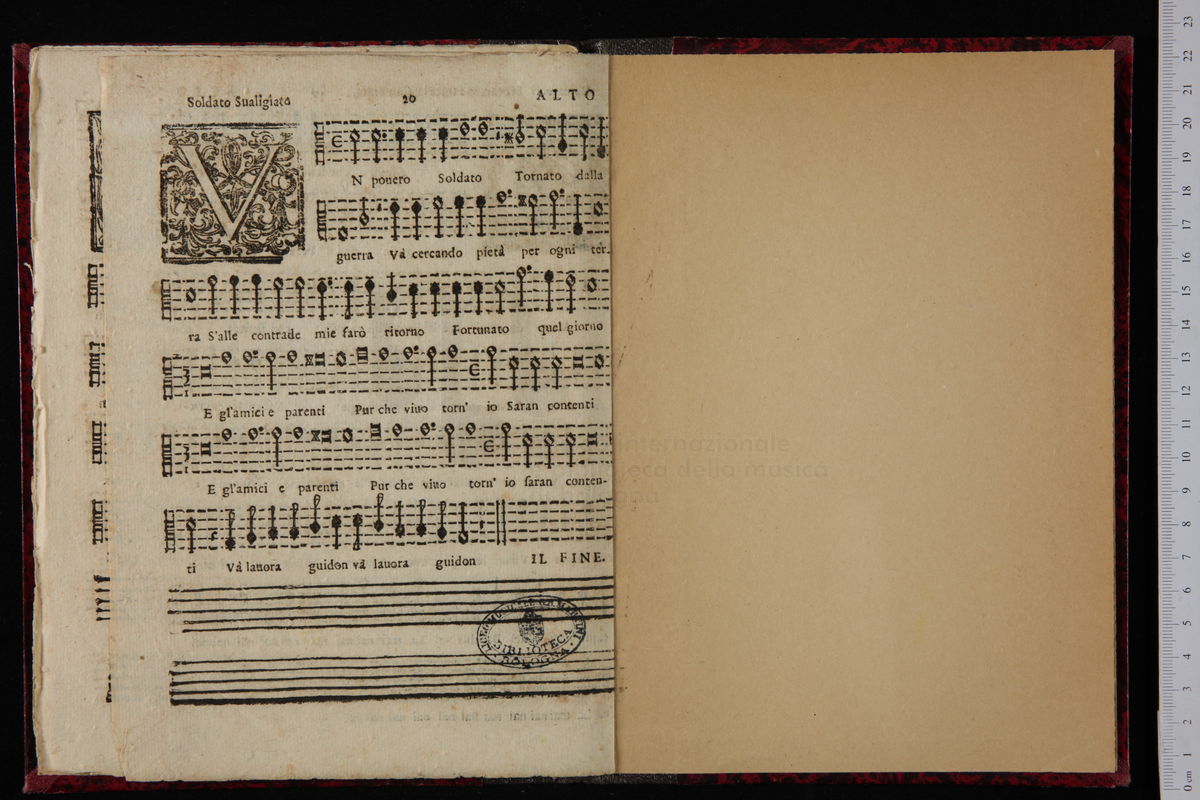 Soldato Sualigiato 20 ALTO
VN pouero Soldato Tornato dalla
guerra Và cercando pietà per ogni ter-
ra S'alle contrade mie farò ritorno Fortunato quel giorno
E gl'amici e parenti Pur che viuo torn' io Saran contenti
E gl'amici e parenti Pur che viuo torn' io saran conten-
ti Và lauora guidon và lauora guidon IL FINE.
BIBLIOTECA
BOLOGNA
internazionale
della musica
0 cm 1 2 3 4 5 6 7 8 9 10 11 12 13 14 15 16 17 18 19 20 21 22 23